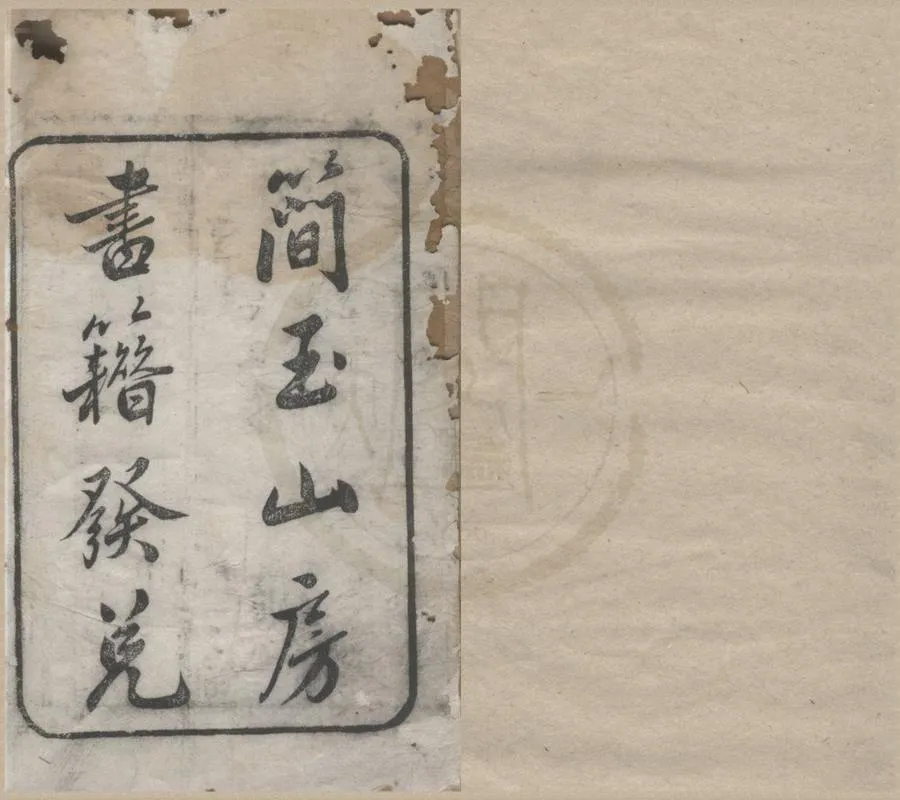 簡玉山房
書籍發兌